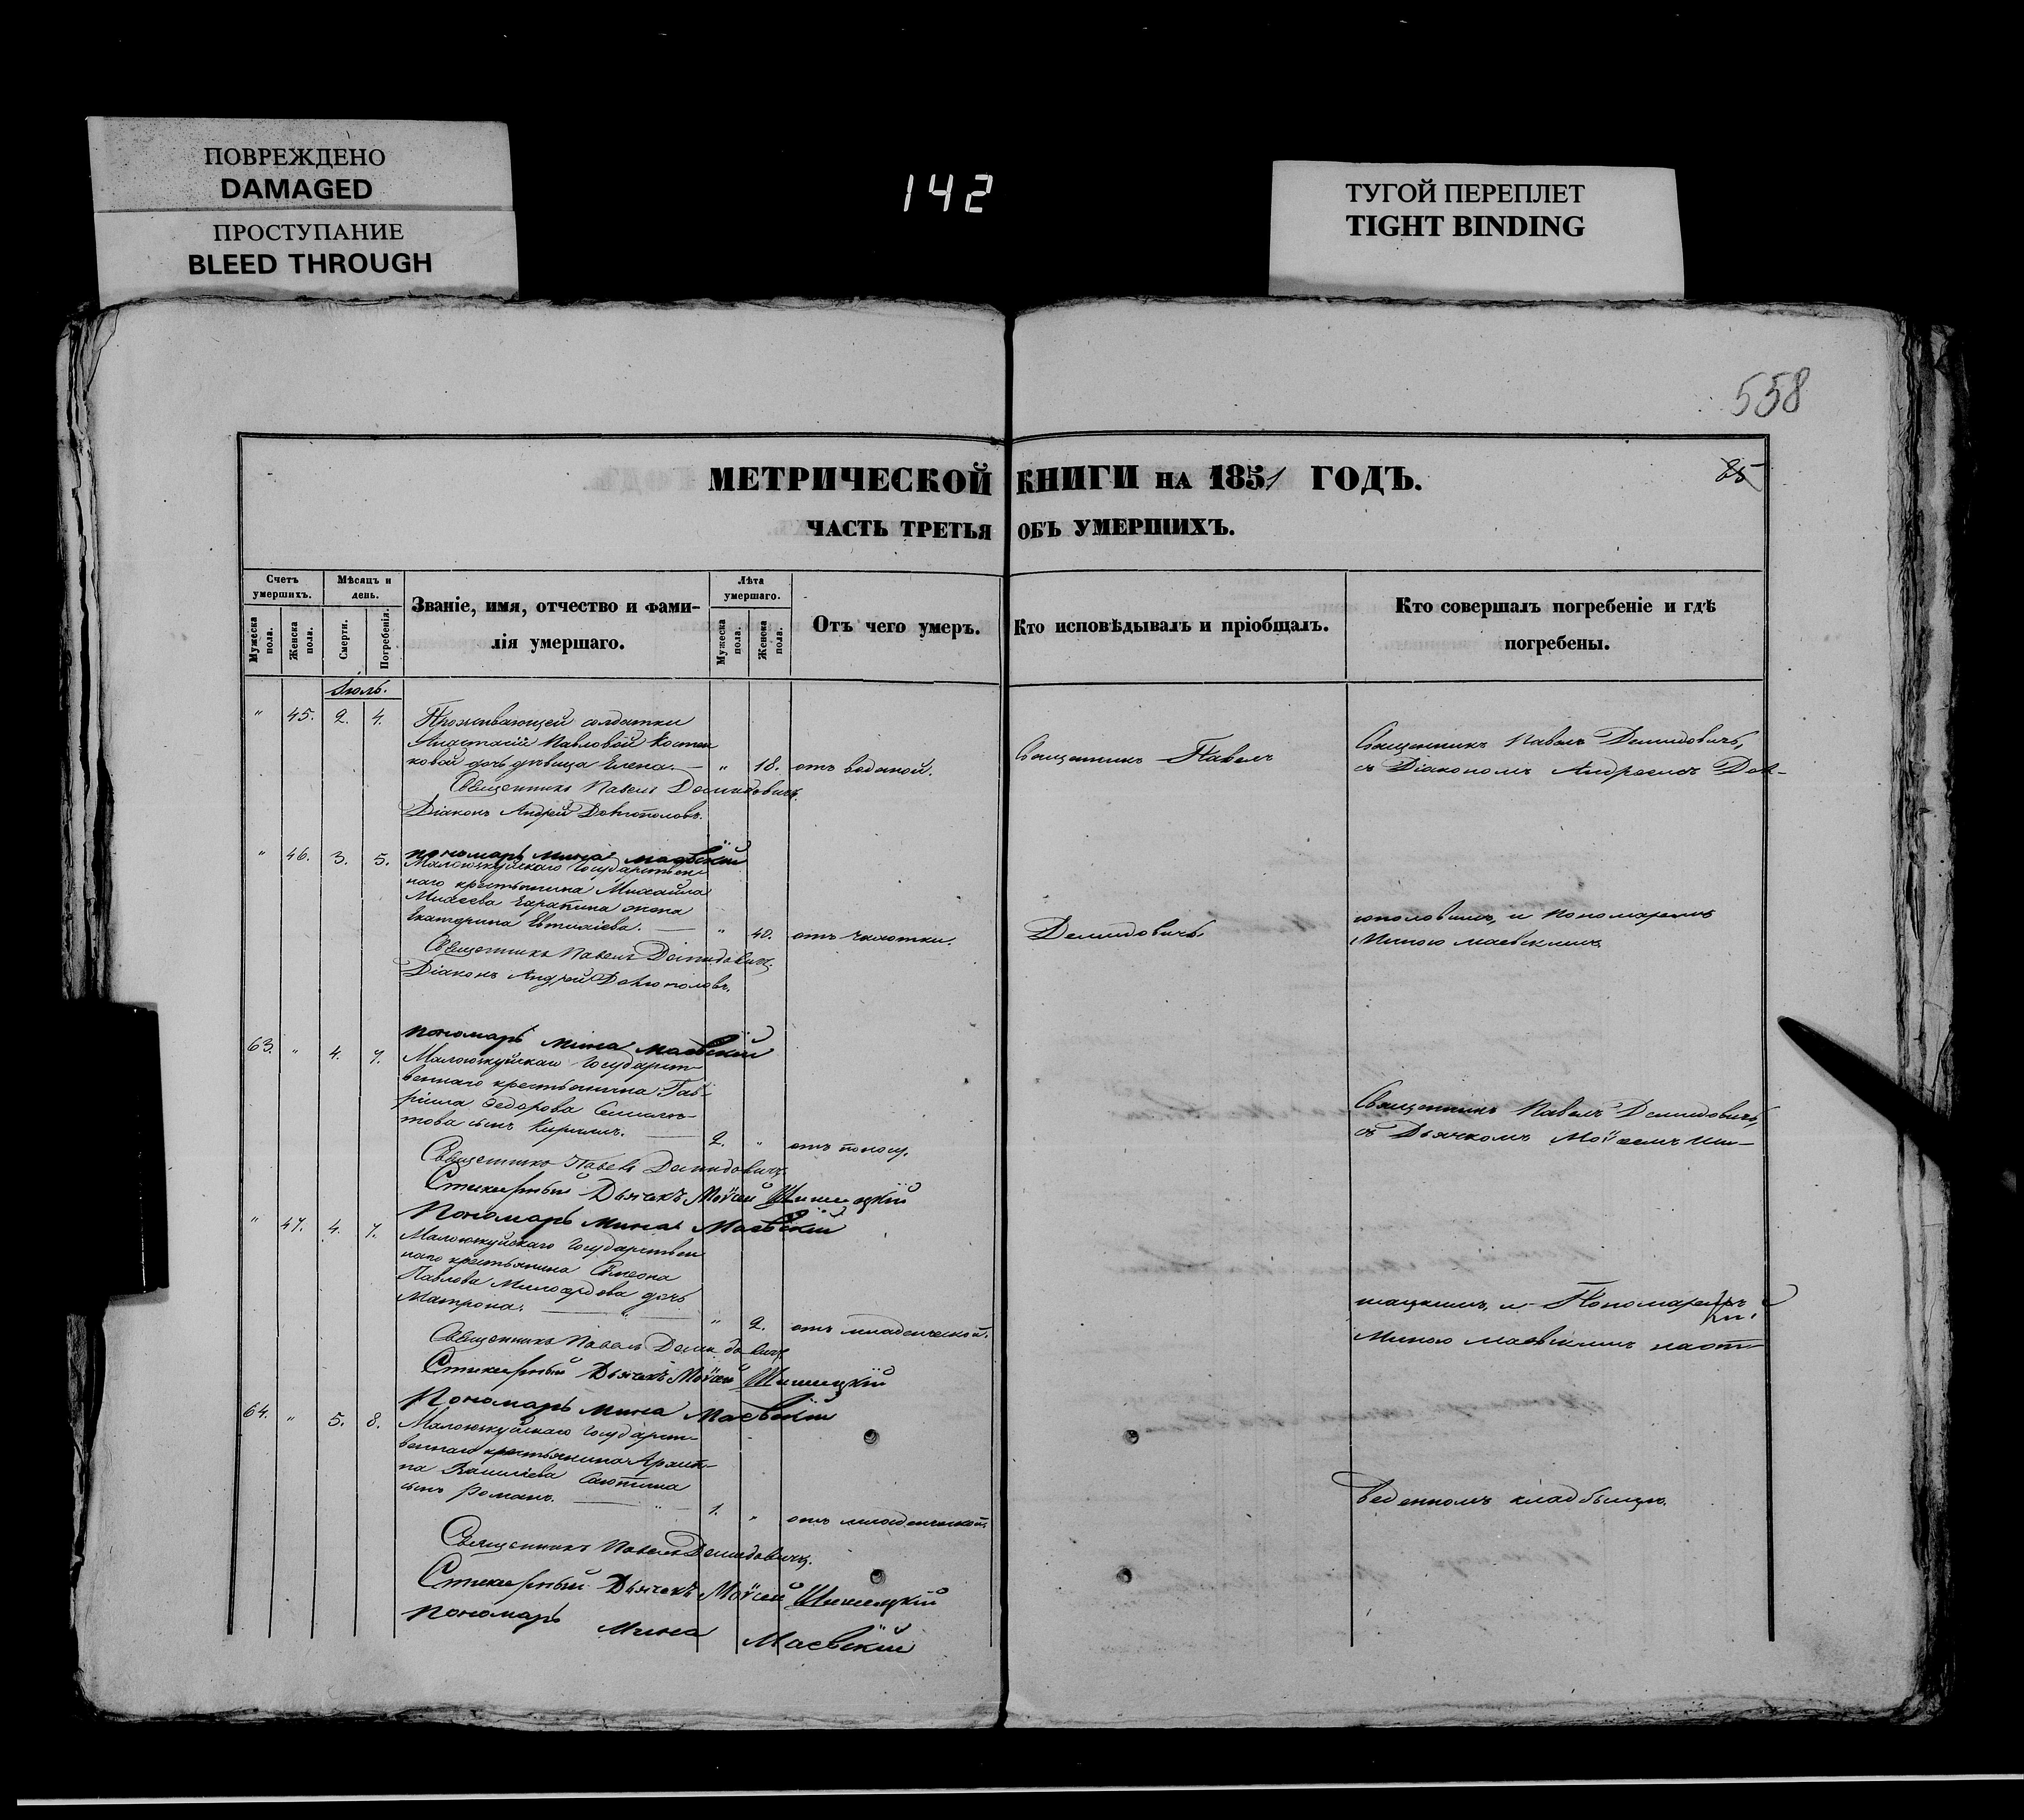 ПОВРЕЖДЕНО
DAMAGED
ПРОСТУПАНИЕ
BLEED THROUGH
142
ТУГОЙ ПЕРЕПЛЕТ
TIGHT BINDING
558
МЕТРИЧЕСКОЙ КНИГИ НА 1851 ГОДЪ.
85
ЧАСТЬ ТРЕТЬЯ ОБЪ УМЕРШИХЪ.
Счетъ умершихъ.
Мужеска пола.
Женска пола.
Мѣсяцъ и день.
Смерти.
Погребенія.
Званіе, имя, отчество и фами-
лія умершаго.
Лѣта умершаго.
Мужеска пола.
Женска пола.
Отъ чего умеръ.
Кто исповѣдывалъ и пріобщалъ.
Кто совершалъ погребеніе и гдѣ
погребены.
Іюль.
" 45. 2. 4. Проживающей солдатки
Анастасіи Павловой Костен
ковой дочь дѣвица Елена. — " 18. отъ водяной.
Священникъ Павелъ Демидовичъ.
Діаконъ Андрей Довгополовъ.
Пономарь Мина Маевскій
" 46. 3. 5. Государствен
наго крестьянина Михаила
жена
Екатерина Евтихіева. — " 40. отъ чахотки.
Священникъ Павелъ Демидовичъ.
Діаконъ Андрей Довгополовъ.
Пономарь Мина Маевскій
63. " 4. 7. Государст-
веннаго крестьянина Гав-
ріила Федорова
сынъ Кириллъ. — 2. " отъ поносу.
Священникъ Павелъ Демидовичъ.
Стихарный Дьячекъ Моѵсей
Пономарь Мина Маевскій
" 47. 4. 7. Государствен
наго крестьянина Сѵмеона
Павлова дочь
Матрона. — " 2. отъ младенческой.
Священникъ Павелъ Демидовичъ
Стихарный Дьячекъ Моѵсей
Пономарь Мина Маевскій
64. " 5. 8. Государст-
веннаго крестьянина
сынъ Романъ. — 1. " отъ младенческой.
Священникъ Павелъ Демидовичъ.
Стихарный Дьячекъ Моѵсей
Пономарь Мина Маевскій
Священникъ Павелъ
Демидовичъ.
Священникъ Павелъ Демидовичъ,
съ Діакономъ Андреемъ Дов-
гополовымъ, и Пономаремъ
Миною Маевскимъ
Священникъ Павелъ Демидовичъ,
съ Дьячкомъ Моѵсеемъ
и Пономаремъ
Миною Маевскимъ на от-
веденномъ кладбищѣ.